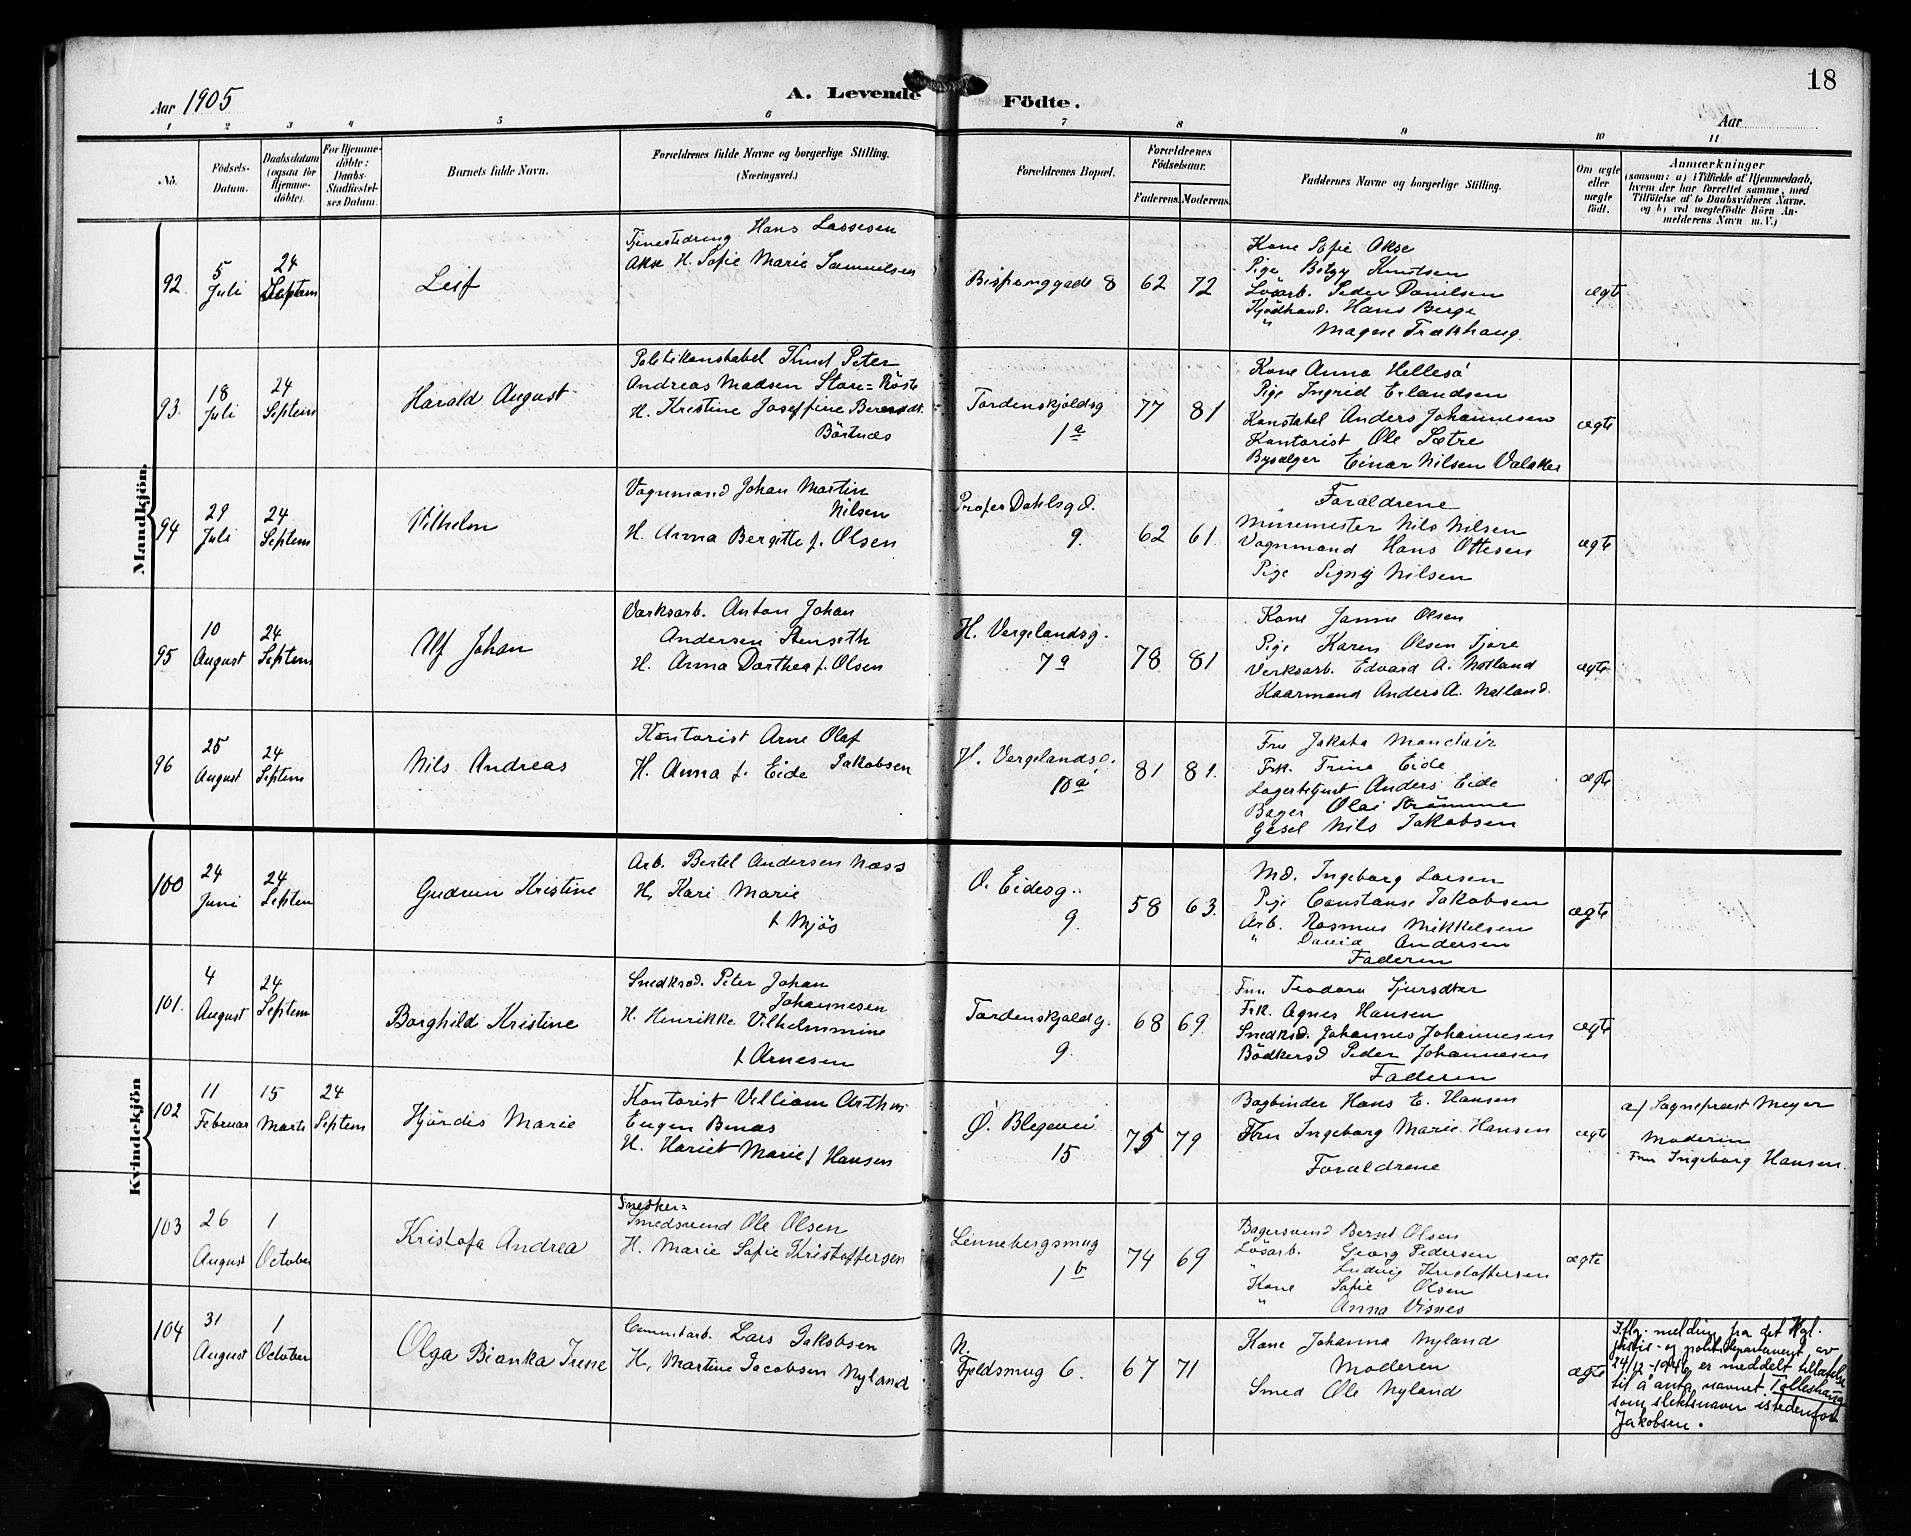 18
Aar 1905
A. Levende Födte.
Aar
1 2 3 4 5 6 7 8 9 10 11
No.
Födsels-Datum.
Daabsdatum (ogsaa for Hjemme-döbte).
For Hjemme-döbte: Daabs-Stadfæstel-ses Datum.
Barnets fulde Navn.
Forældrenes fulde Navne og borgerlige Stilling.
(Næringsvei.)
Forældrenes Bopæl.
Forældrenes Födselsaar.
Faderens. Moderens.
Faddernes Navne og borgerlige Stilling.
Om ægte eller uægte födt.
Anmærkninger
(saasom: a) i Tilfælde af Hjemmedaab,
hvem der har forrettet samme, med
Tilföielse af to Daabsvidners Navne.
og b) ved uægtefödte Börn An-
melderens Navn m. V.)
Mandkjön.
92.
5 Juli
24 Septem
Leif
Tjenestedreng Hans Lassesen
Akse H. Sofie Marie Samuelsen
Bispenggade 8
62
72
Kone Sofie Akse
Pige Betzy Knutsen
Lösarb. Peder Danilsen
Kjödhand. Hans Berge
" Magne Trækhaug.
ægte
93.
18 Juli
24 Septem
Harald August
Politikonstabel Knut Peter
Andreas Madsen Stare=Röste
H. Kristine Joseffine Berendt.
Börtnes
Tordenskjoldsg
1 a
77
81
Kone Anna Hellesö
Pige Ingrid Erlandsen
Konstabel Anders Johannesen
Kontorist Ole Sætre
Bysælger Einar Nilsen Valaker
ægte
94
29 Juli
24 Septem
Vilhelm
Vognmand Johan Martin
Nilsen
H. Anna Bergitte f. Olsen
Profes Dahlsgd.
9.
62
61.
Forældrene
Minemester Nils Nilsen
Vognmand Hans Ottesen
Pige Signy Nilsen
ægte
95
10 August
24 Septem
Alf Johan
Værksarb. Anton Johan
Andersen Stenseth
H. Anna Dorthea f. Olsen
H. Vergelandsg.
7 a
78
81
Kone Janne Olsen
Pige Karen Olsen Tjore
Verksarb. Edvard A. Natland
Kaarmand Anders A. Natland.
ægte
96
25 August
24 Septem
Nils Andreas
Kontorist Arne Olaf
Jakobsen
H. Anna f. Eide
H. Vergelandsg.
10 a
81
81.
Fru Jakoba Monclair
Frk. Trine Eide
Lagerbetjent Anders Eide
Bager Olai Strömme
Gesel Nils Jakobsen
ægte
Kvindekjön
100
24 Juni
24 Septem
Gudrun Kristine
Arb. Bertel Andersen Næss
H. Kari Marie
f Mjös
O. Eidesg.
9.
58
63.
Md. Ingeborg Larsen
Pige Constanse Jakobsen
Arb. Rasmus Mikkelsen
" David Andersen
Faderen
ægte
101.
4 August
24 Septem
Borghild Kristine
Snedksd. Peter Johan
Johannesen
H. Henrikke Vilhelmmine
f Arnesen
Tordenskjoldg.
9.
68
69.
Fru Teodora Sjursdter
Frk. Agnes Hansen
Snedksd. Johannes Johannesen
Bödkersd Peder Johannesen
Faderen
ægte
102
11 Februar
15 Marts
24 Septem
Hjördis Marie
Kontorist Villiam Arthur
Eugen Benæs
H. Hariet Marie f Hansen
Ø. Blegevei
15
75
79
Bogbinder Hans E. Hansen
Fru Ingeborg Marie Hansen
Forældrene
ægte
af Sognepræst Meyer
Moderen
Fru Ingeborg Hansen.
103
26 August
1 October
Kristofa Andrea
Snedker=
Smedsvend Ole Olsen
H. Marie Sofie Kristoffersen
Linnebergsmug
1 b
74
69
Bagersvend Bernt Olsen
Lösarb. Georg Pedersen
" Ludvig Kristoffersen
Kone Sofie Olsen
" Anna Visnes
ægte
104
31 August
1 October
Olga Bianka Irene
Cementarb. Lars Jakobsen
H, Martine Jacobsen Nyland
N.
Fjeldsmug 6.
67
71
Kone Johanna Nyland
Moderen
Smed Ole Nyland
ægte
Iflg. melding fra det Kgl.
justis- og politidepartement av
24/12-1946 er meddelt tillatelse
til å anta navnet Tolleshaug
som slektsnavn istedenfor
Jakobsen.